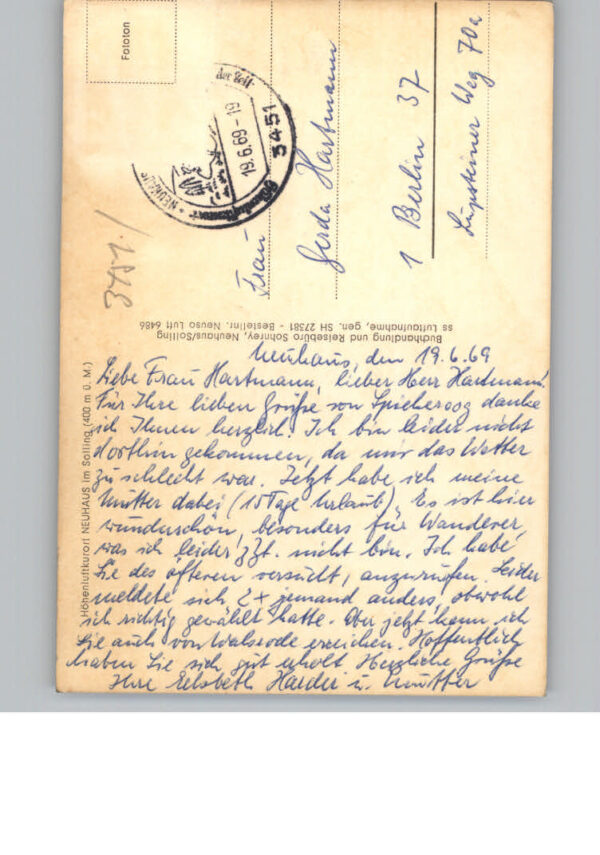 Fototon
der Zeit
19.6.69-19
3451
NEUHAUS
3451./
Frau
Gerda Hartmann
1 Berlin 37
Weg 70a
Buchhandlung und Reisebüro Sohnrey, Neuhaus/Solling
ss Luftaufnahme, gen. SH 27381 - Bestellnr. Neuso Luft 6486
Höhenluftkurort NEUHAUS im Solling (400 m ü. M.)
Neuhaus, den 19.6.69
Liebe Frau Hartmann, lieber Herr Hartmann!
Für Ihre lieben Grüße von Spiekeroog danke
ich Ihnen herzlich. Ich bin leider nicht
dorthin gekommen, da mir das Wetter
zu schlecht war. Jetzt habe ich meine
Mutter dabei (10 Tage Urlaub). Es ist hier
wunderschön, besonders für Wanderer,
was ich leider zZt. nicht bin. Ich habe
Sie des öfteren versucht, anzurufen. Leider
meldete sich 2x jemand anders, obwohl
ich richtig gewählt hatte. Aber jetzt kann ich
Sie auch von Walsrode erreichen. Hoffentlich
haben Sie sich gut erholt. Herzliche Grüße
Ihre Elsbeth u. Mutter